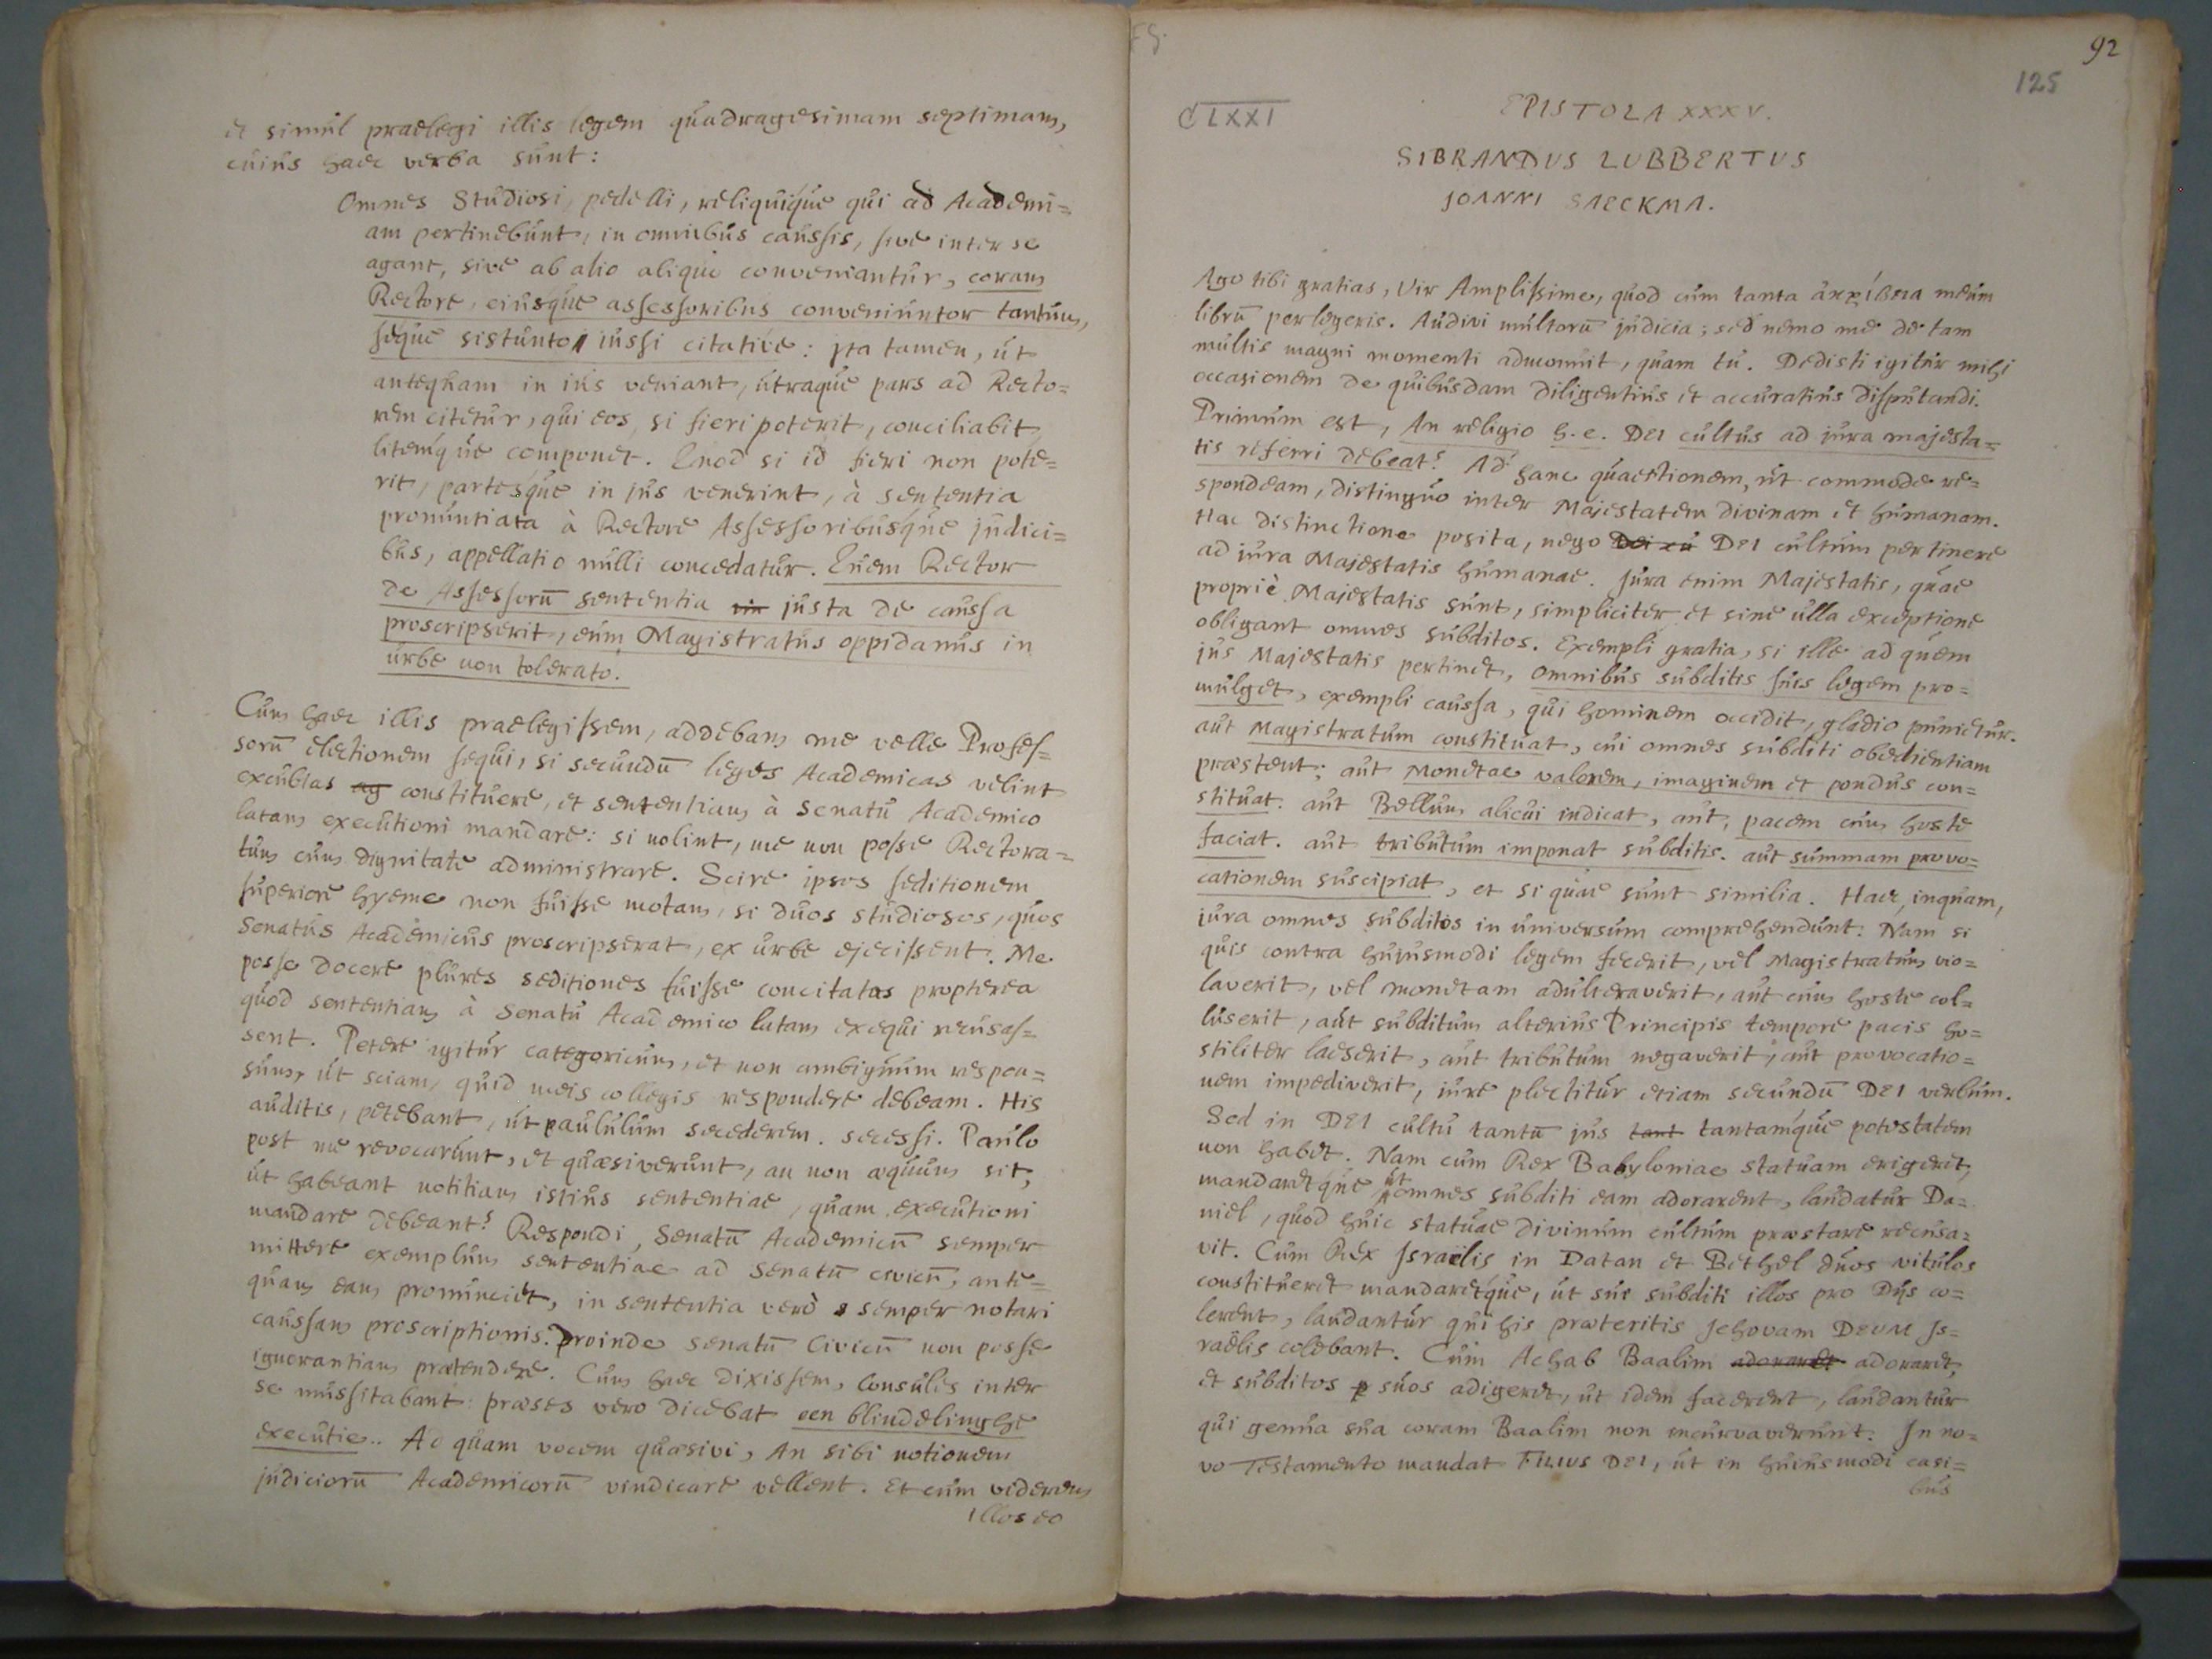 et simul praelegi illis legem quadragesimam septimam,
cuius haec verba sunt:
Omnes Studiosi, pedelli, reliquique qui ad Academi=
am pertinebunt, in omnibus caussis, sive inter se
agant, sive ab alio aliquo conveniantur, coram
Rectore, eiusque assessoribus conveniuntor tantum,
seque sistunto iussi citative: Ita tamen, ut
antequam in ius veniant, utraque pars ad Recto=
rem citetur, qui eos, si fieri poterit, conciliabit,
litemque componet. Quod si id fieri non pote=
rit, partesque in jus venerint, à sententia
pronuntiata à Rectore Assessoribusque judici=
bus, appellatio nulli concedatur. Quem Rector
de Assessorū sententia justa de caussa
proscripserit, eum Magistratus oppidanus in
urbe non tolerato.
Cum haec illis praelegissem, addebam me velle Profes=
sorū electionem sequi, si secundū leges Academicas velint
excubias ag constituere, et sententiam à Senatu Academico
latam executioni mandare: si nolint, me non posse Rectora=
tum cum dignitate administrare. Scire ipsos seditionem
superiore hyeme non fuisse motam, si duos studiosos, quos
Senatus Academicus proscripserat, ex urbe ejecissent. Me
posse docere plures seditiones fuisse concitatas propterea
quod sententiam à Senatu Academico latam exequi recusas=
sent. Petere igitur categoricum, et non ambiguum respon=
sum, ut sciam, quid meis collegis respondere debeam. His
auditis, petebant, ut paululum secederem. secessi. Paulo
post me revocarunt, et quæsiverunt, an non æquum sit,
ut habeant notitiam istius sententiae, quam executioni
mandare debeant? Respondi, Senatū Academicū semper
mittere exemplum sententiae ad Senatū civicū, ante=
quam eam pronunciet, in sententia verò semper notari
caussam proscriptionis. Proinde Senatū Civicū non posse
ignorantiam prætendere. Cum haec dixissem, Consules inter
se mussitabant: præses vero dicebat een blindelinghe
executie.. Ad quam vocem quæsivi, An sibi notionem
judiciorū Academicorū vindicare vellent. Et cum viderem
illos eo
92
125
CLXXI
EPISTOLA XXXV.
SIBRANDUS LUBBERTUS
JOANNI SAECKMA.
Ago tibi gratias, Vir Amplissime, quod cum tanta ἀκρίβεια meum
librū perlegeris. Audivi multorū judicia; sed nemo me de tam
multis magni momenti admonuit, quam tu. Dedisti igitur mihi
occasionem de quibusdam diligentius et accuratius disputandi.
Primum est, An religio h. e. DEI cultus ad jura majesta=
tis referri debeat? Ad hanc quaestionem, ut commode re=
spondeam, distinguo inter Majestatem divinam et humanam.
Hac distinctione posita, nego Dei cu DEI cultum pertinere
ad jura Majestatis humanae. Jura enim Majestatis, quae
propriè Majestatis sunt, simpliciter et sine ulla exceptione
obligant omnes subditos. Exempli gratia, si ille ad quem
jus Majestatis pertinet, omnibus subditis suis legem pro=
mulget, exempli caussa, qui hominem occidit, gladio punietur.
aut Magistratum constituat, cui omnes subditi obedientiam
præstent; aut Monetae valorem, imaginem et pondus con=
stituat. aut Bellum alicui indicat, aut, pacem cum hoste
faciat. aut tributum imponat subditis. aut summam provo=
cationem suscipiat, et si quae sunt similia. Haec, inquam,
jura omnes subditos in universum comprehendunt. Nam si
quis contra hujusmodi legem fecerit, vel Magistratum vio=
laverit, vel monetam adulteraverit, aut cum hoste col=
luserit, aut subditum alterius Principis tempore pacis ho=
stiliter laeserit, aut tributum negaverit, aut provocatio=
nem impediverit, iure plectitur etiam secundū DEI verbum.
Sed in DEI cultu tantū jus tant tantamque potestatem
non habet. Nam cum Rex Babyloniae statuam erigeret,
mandaretque ut omnes subditi eam adorarent, laudatur Da=
niel, quod huic statuae divinum cultum præstare recusa=
vit. Cum Rex Israelis in Datan et Bethel duos vitulos
constitueret mandaretque, ut sui subditi illos pro Dijs co=
lerent, laudantur qui his præteritis Jehovam DEUM Is=
raëlis colebant. Cum Achab Baalim adoraret adoraret,
et subditos p suos adigeret, ut idem facerent, laudantur
qui genua sua coram Baalim non incurvaverunt. In no=
vo Testamento mandat FILIUS DEI, ut in huiusmodi casi=
bus